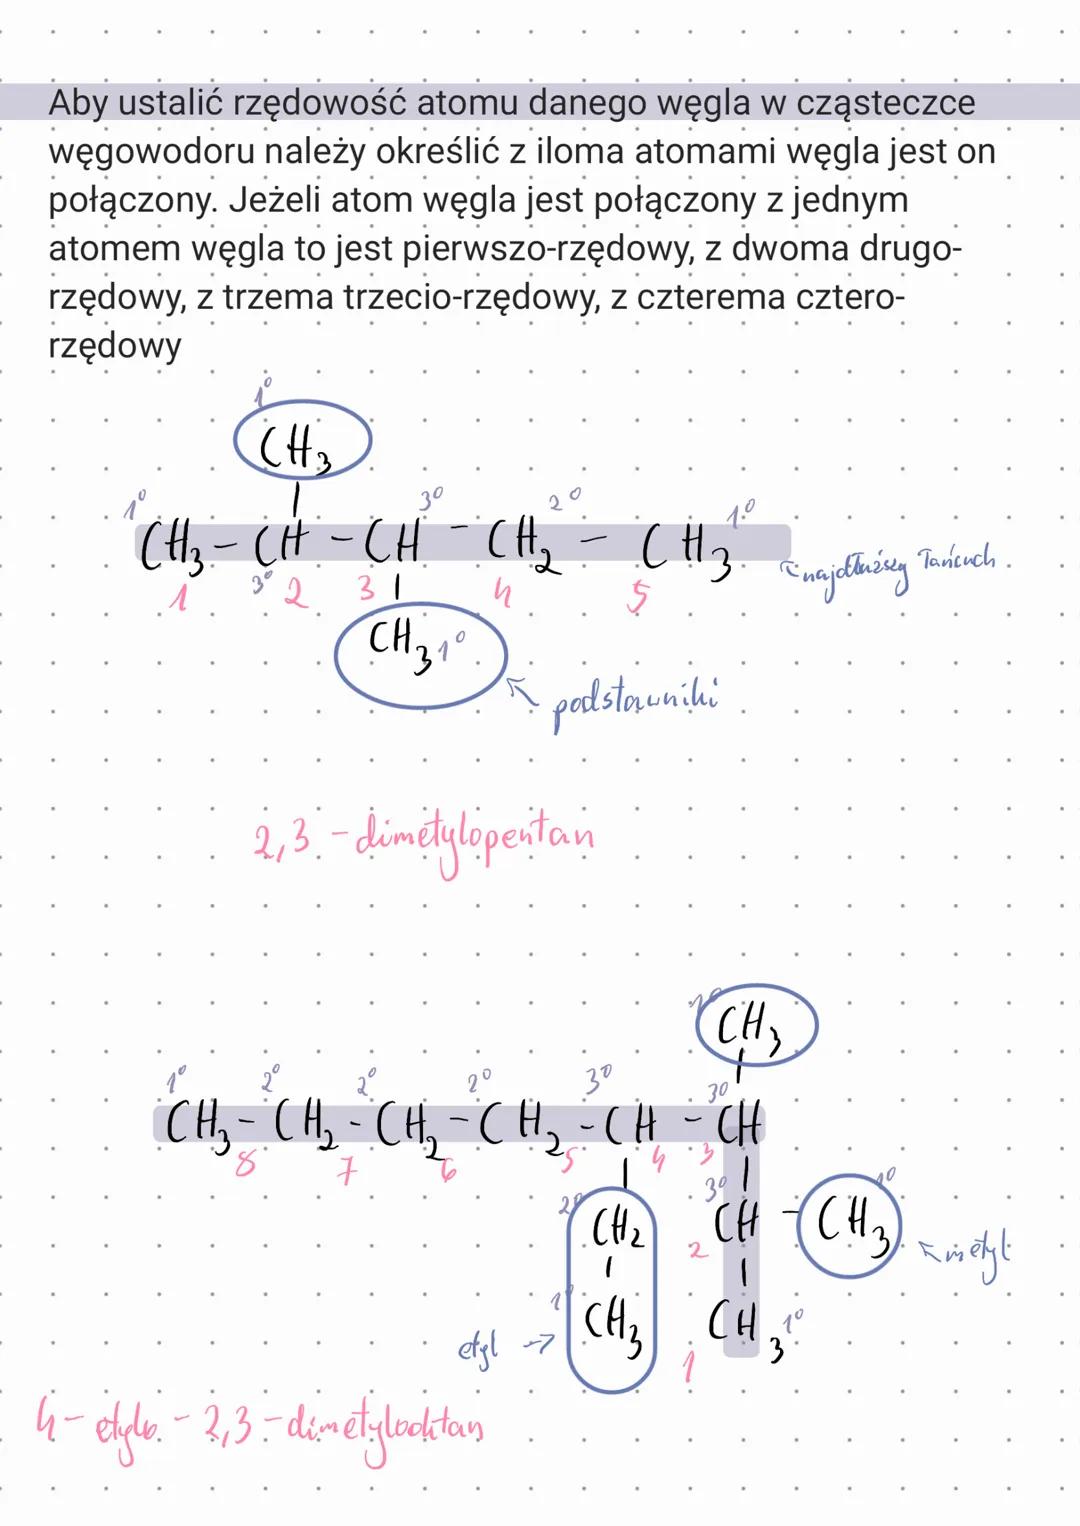 Aby ustalić rzędowość atomu danego węgla w cząsteczce
węgowodoru należy określić z iloma atomami węgla jest on
połączony. Jeżeli atom węgla jest połączony z jednym
atomem węgla to jest pierwszo-rzędowy, z dwoma drugo-
rzędowy, z trzema trzecio-rzędowy, z czterema cztero-
rzędowy
1°
CH₃
1° 3° 2° 1°
CH₃ - CH - CH - CH₂ - CH₃
najdłuższy łańcuch
1 3° 2 3 4 5
CH₃ 1°
podstawniki
2,3 - dimetylopentan
1°
CH₃
1° 2° 2° 2° 3° 3°
CH₃ - CH₂ - CH₂ - CH₂ - CH - CH
8 7 6 5 4 3
2° 3° 1°
CH₂ 2 CH - CH₃
metyl
1°
CH₃ CH₃ 1°
etyl 1
4 - etylo - 2,3 - dimetylooktan